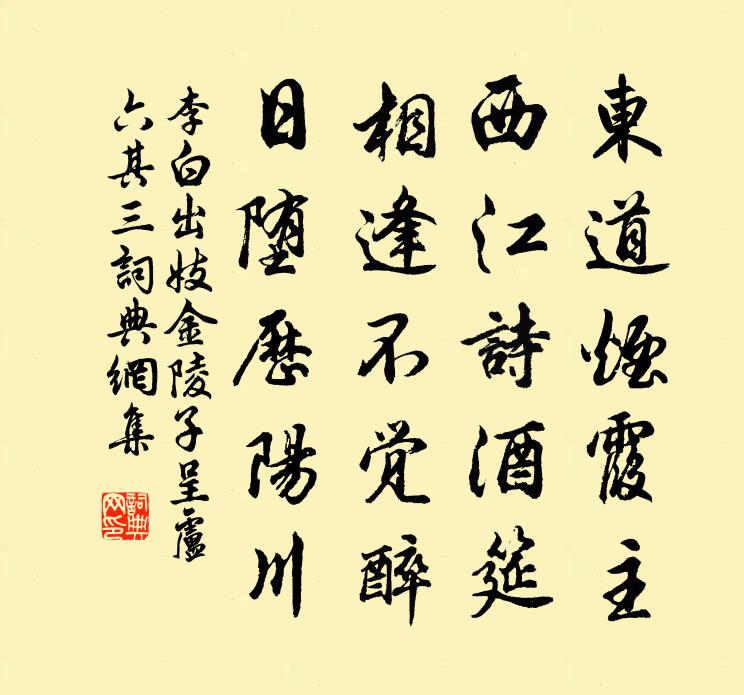 東道煙霞主
西江詩酒筵
相逢不覚醉
日堕歷陽川
李白出妓金陵子呈盧
六其三詞典網集
詞典
网印